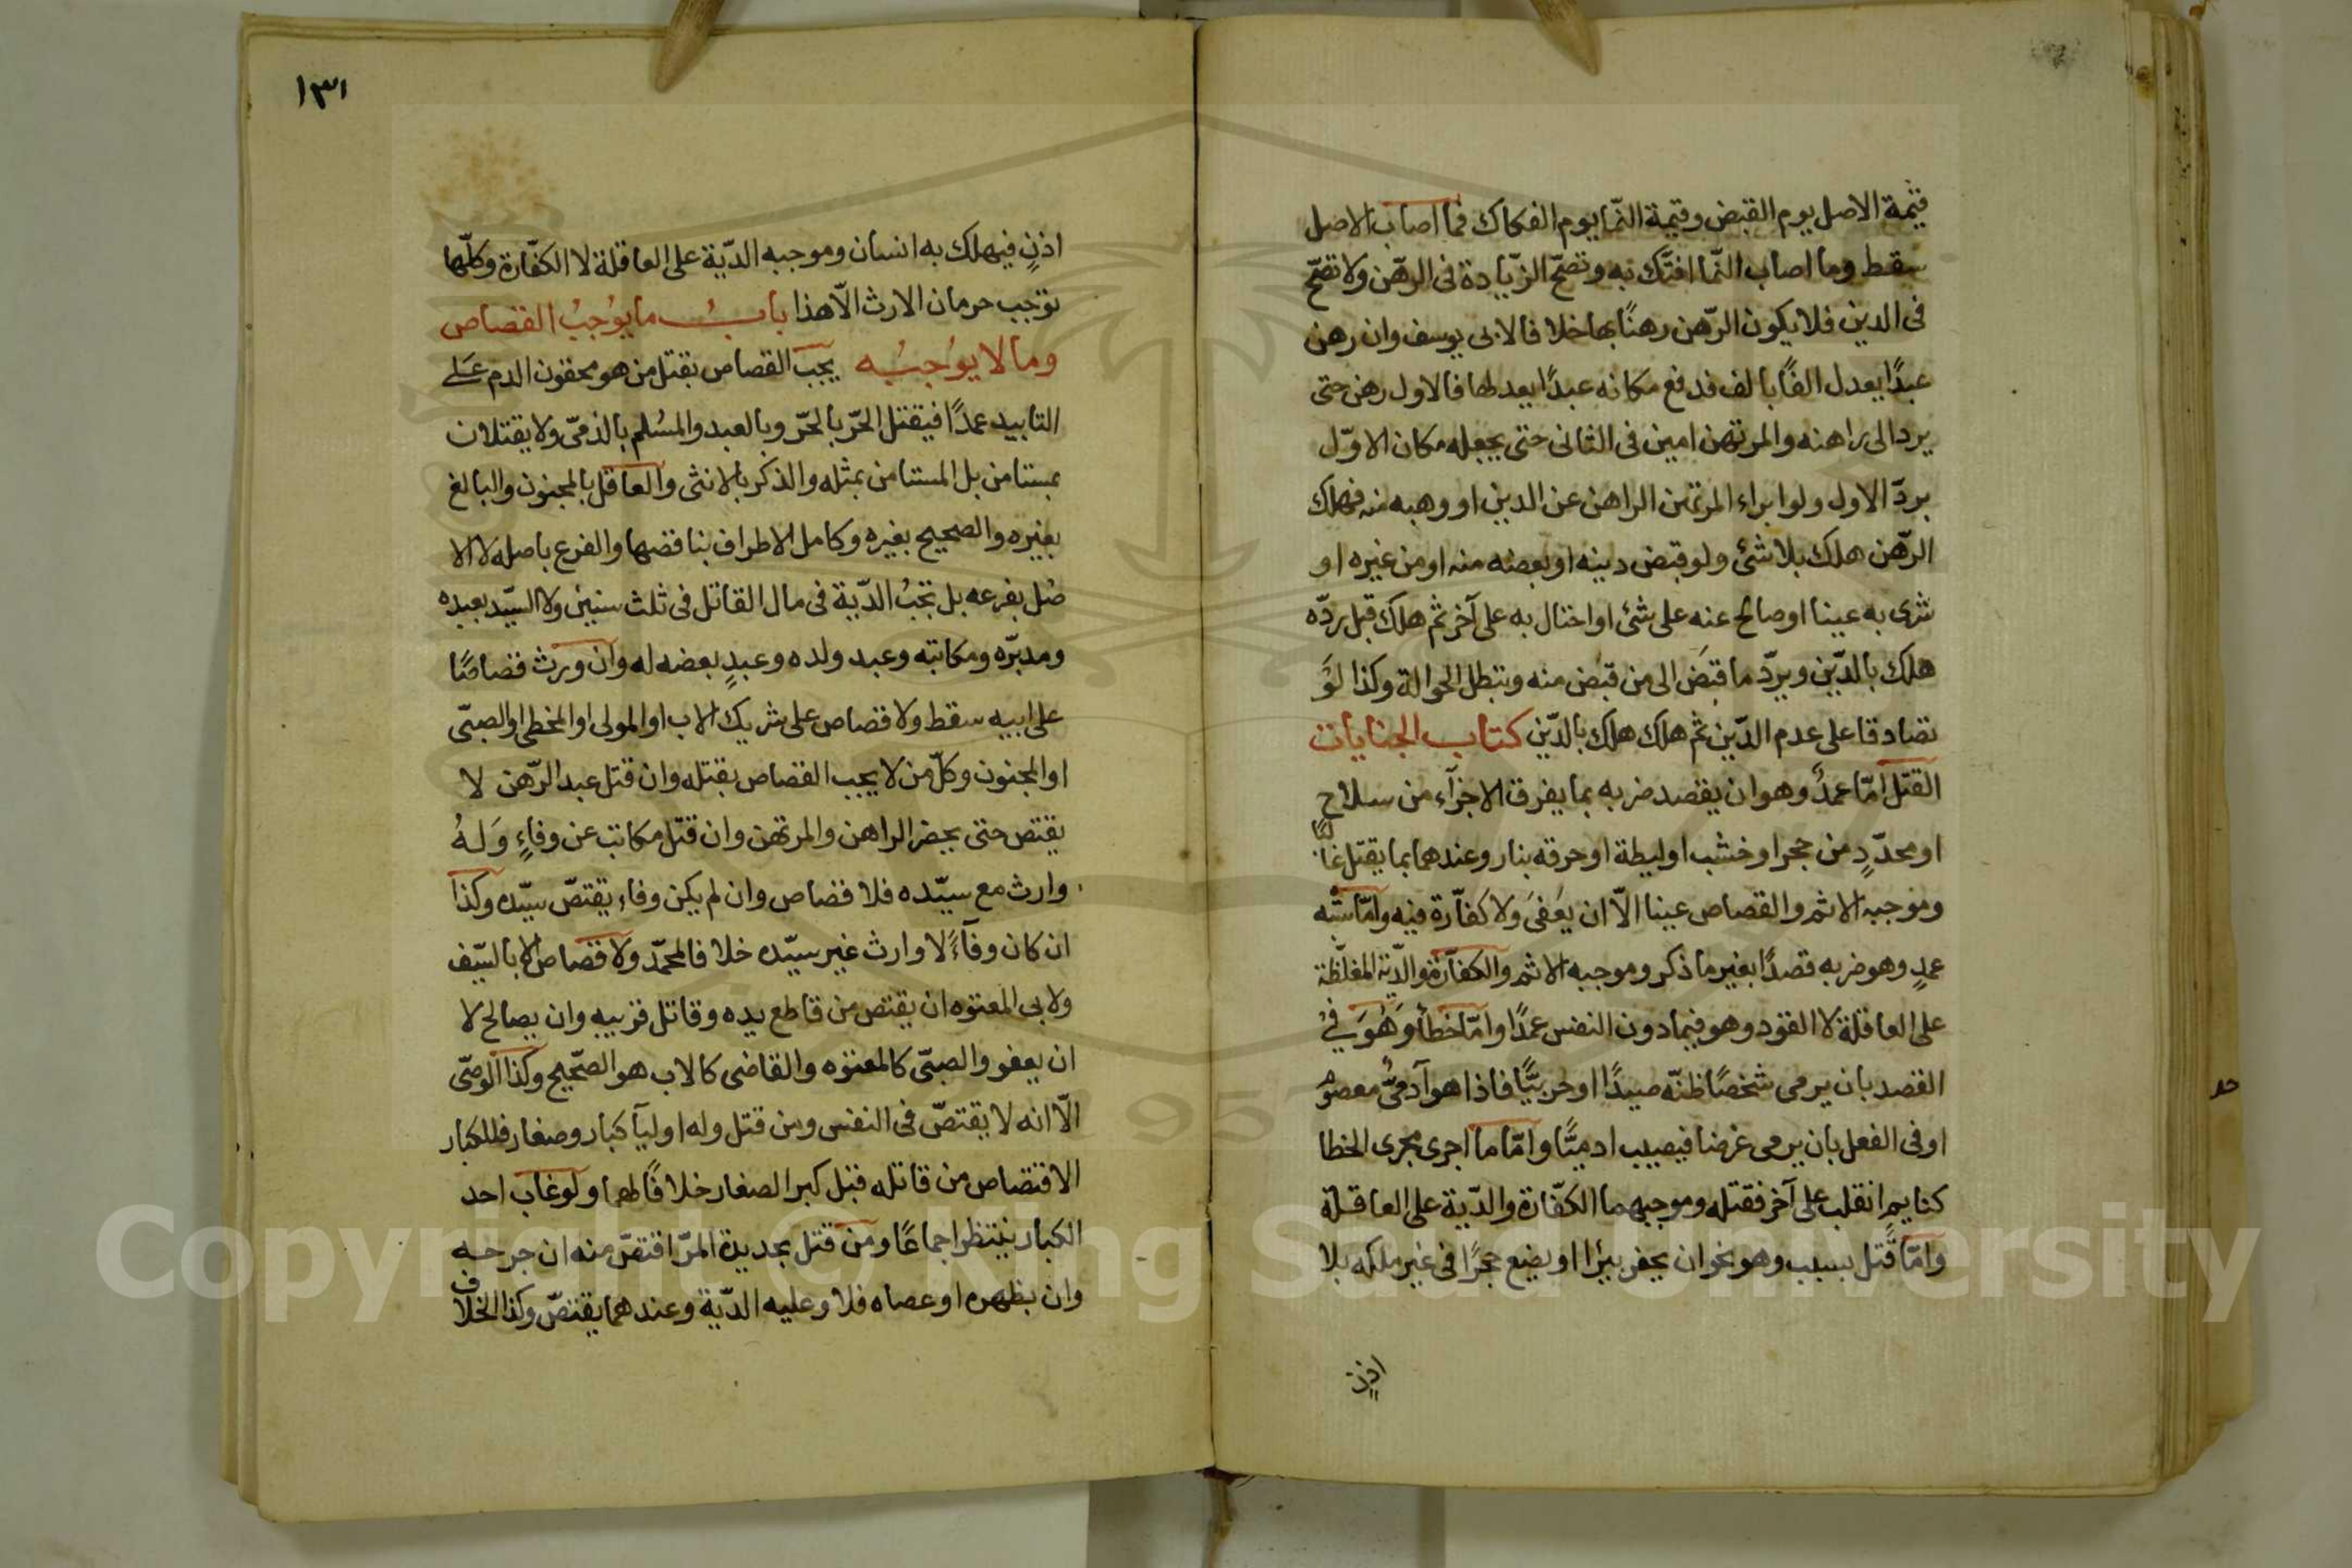 قيمة الاصل يوم القبض وقيمة النّما يوم الفكاك فما اصاب الاصل
سقط وما اصاب النّما افتّك به وتصحّ الزّيادة فى الرهن ولا تصحّ
فى الدين فلا يكون الرّهن رهنًا بها خلافا لابى يوسف وان رهن
عبدًا يعدل الفًا بالف فدفع مكانه عبدًا يعدلها فالاول رهن حتى
يرد الى راهنه والمرتهن امين فى الثانى حتى يجعله مكان الاوّل
بردّ الاول ولو ابراء المرتهن الراهن عن الدين او وهبه منه فهلك
الرّهن هلك بلا شئ ولو قبض دينه او بعضه منه او من غيره او
شرى به عينا او صالح عنه على شئ او احتال به على آخر ثم هلك قبل ردّه
هلك بالدّين ويردّ ما قبَض الى من قبض منه وتبطل الحوالة وكذا لوْ
تصادقا على عدم الدّين ثم هلك هلك بالدّين كتاب الجنايات
القتل امّا عمدٌ وهو ان يقصد ضربه بما يفرق الاجزآء من سلاح
او محدّدٍ من حجر او خشب او ليطة او حرقه بنار وعندهما بما يقتل غالبًا
وموجبه الاثم والقصاص عينا الّا ان يعَفىَ ولا كفّارة فيه وامّا شبه
عمدٍ وهو ضربه قصدًا بغير ما ذكر وموجبه الاثم والكفّارة والدّية المغلّظة
على العاقلة لا القود وهو فيما دون النفس عمدًا وامّا خطأ وَهُوَ فىْ
القصد بان يرمى شخصًا ظنّه صيدًا او حربيًّا فاذا هو آدمىٌّ معصوم
او فى الفعل بان يرمى غرضا فيصيب ادميًّا وامّا ما اجرى مجرى الخطا
كنايم انقلب على آخر فقتله وموجبهما الكفّارة والدّية على العاقلة
وامّا قتل بسبب وهو نحو ان يحفر بيئرا او يضع حجرًا فى غير ملكه بلا
اذنٍ
١٣١
اذنٍ فيهلك به انسان وموجبه الدّية على العاقلة لا الكفّارة وكلّها
توجب حرمان الارث الّا هذا بابُ ما يوُجِبُ القصاص
وما لا يوُجبُه يجب القصاص بقتل من هو محقون الدم عَلىَ
التابيد عمدًا فيقتل الحّر بالحّر وبالعبد والمسُلم بالذمّى ولا يقتلان
بمستامن بل المستامن بمثله والذكر بالانثى والعاقل بالمجنون والبالغ
بغيره والصحيح بغيره وكامل الاطراف بناقصها والفرع باصله لا الا
صُل بفرعه بل تجبُ الدّية فى مال القاتل فى ثلث سنين ولا السّيد بعبده
ومدبّره ومكاتبه وعبد ولده وعبدٍ بعضه له وان ورث قصاصًا
على ابيه سقط ولا قصاص على شريك الاب او المولى او المخطى او الصبّى
او المجنون وكلّ من لا يجب القصاص بقتله وان قتل عبد الرّهن لا
يقتص حتى يحضر الراهن والمرتهن وان قتل مكاتب عن وفاءٍ وَلهُ
وارث مع سيّده فلا قصاص وان لم يكن وفاء يقتصّ سيّده وكذا
ان كان وفآءً لا وارث غير سيّده خلافا لمحمّد ولا قصاص الا بالسّيف
ولابى المعتوه ان يقتص من قاطع يده وقاتل قريبه وان يصالح لا
ان يعفو والصبّى كالمعتوه والقاضى كالاب هو الصّحيح وكذا الوصّى
الّا انه لا يقتصّ فى النفس ومن قتل وله اوليآ كبار وصغار فللكبار
الاقتصاص من قاتله قبل كبر الصغار خلافًا لهما ولو غاب احد
الكبار ينتظر اجماعًا ومن قتل بحديدة المرّ اقتصّ منه ان جرحه
وان بظهره او عصاه فلا وعليه الدّية وعندهما يقتصّ وكذا الخلاف
Copyright © King Saud University